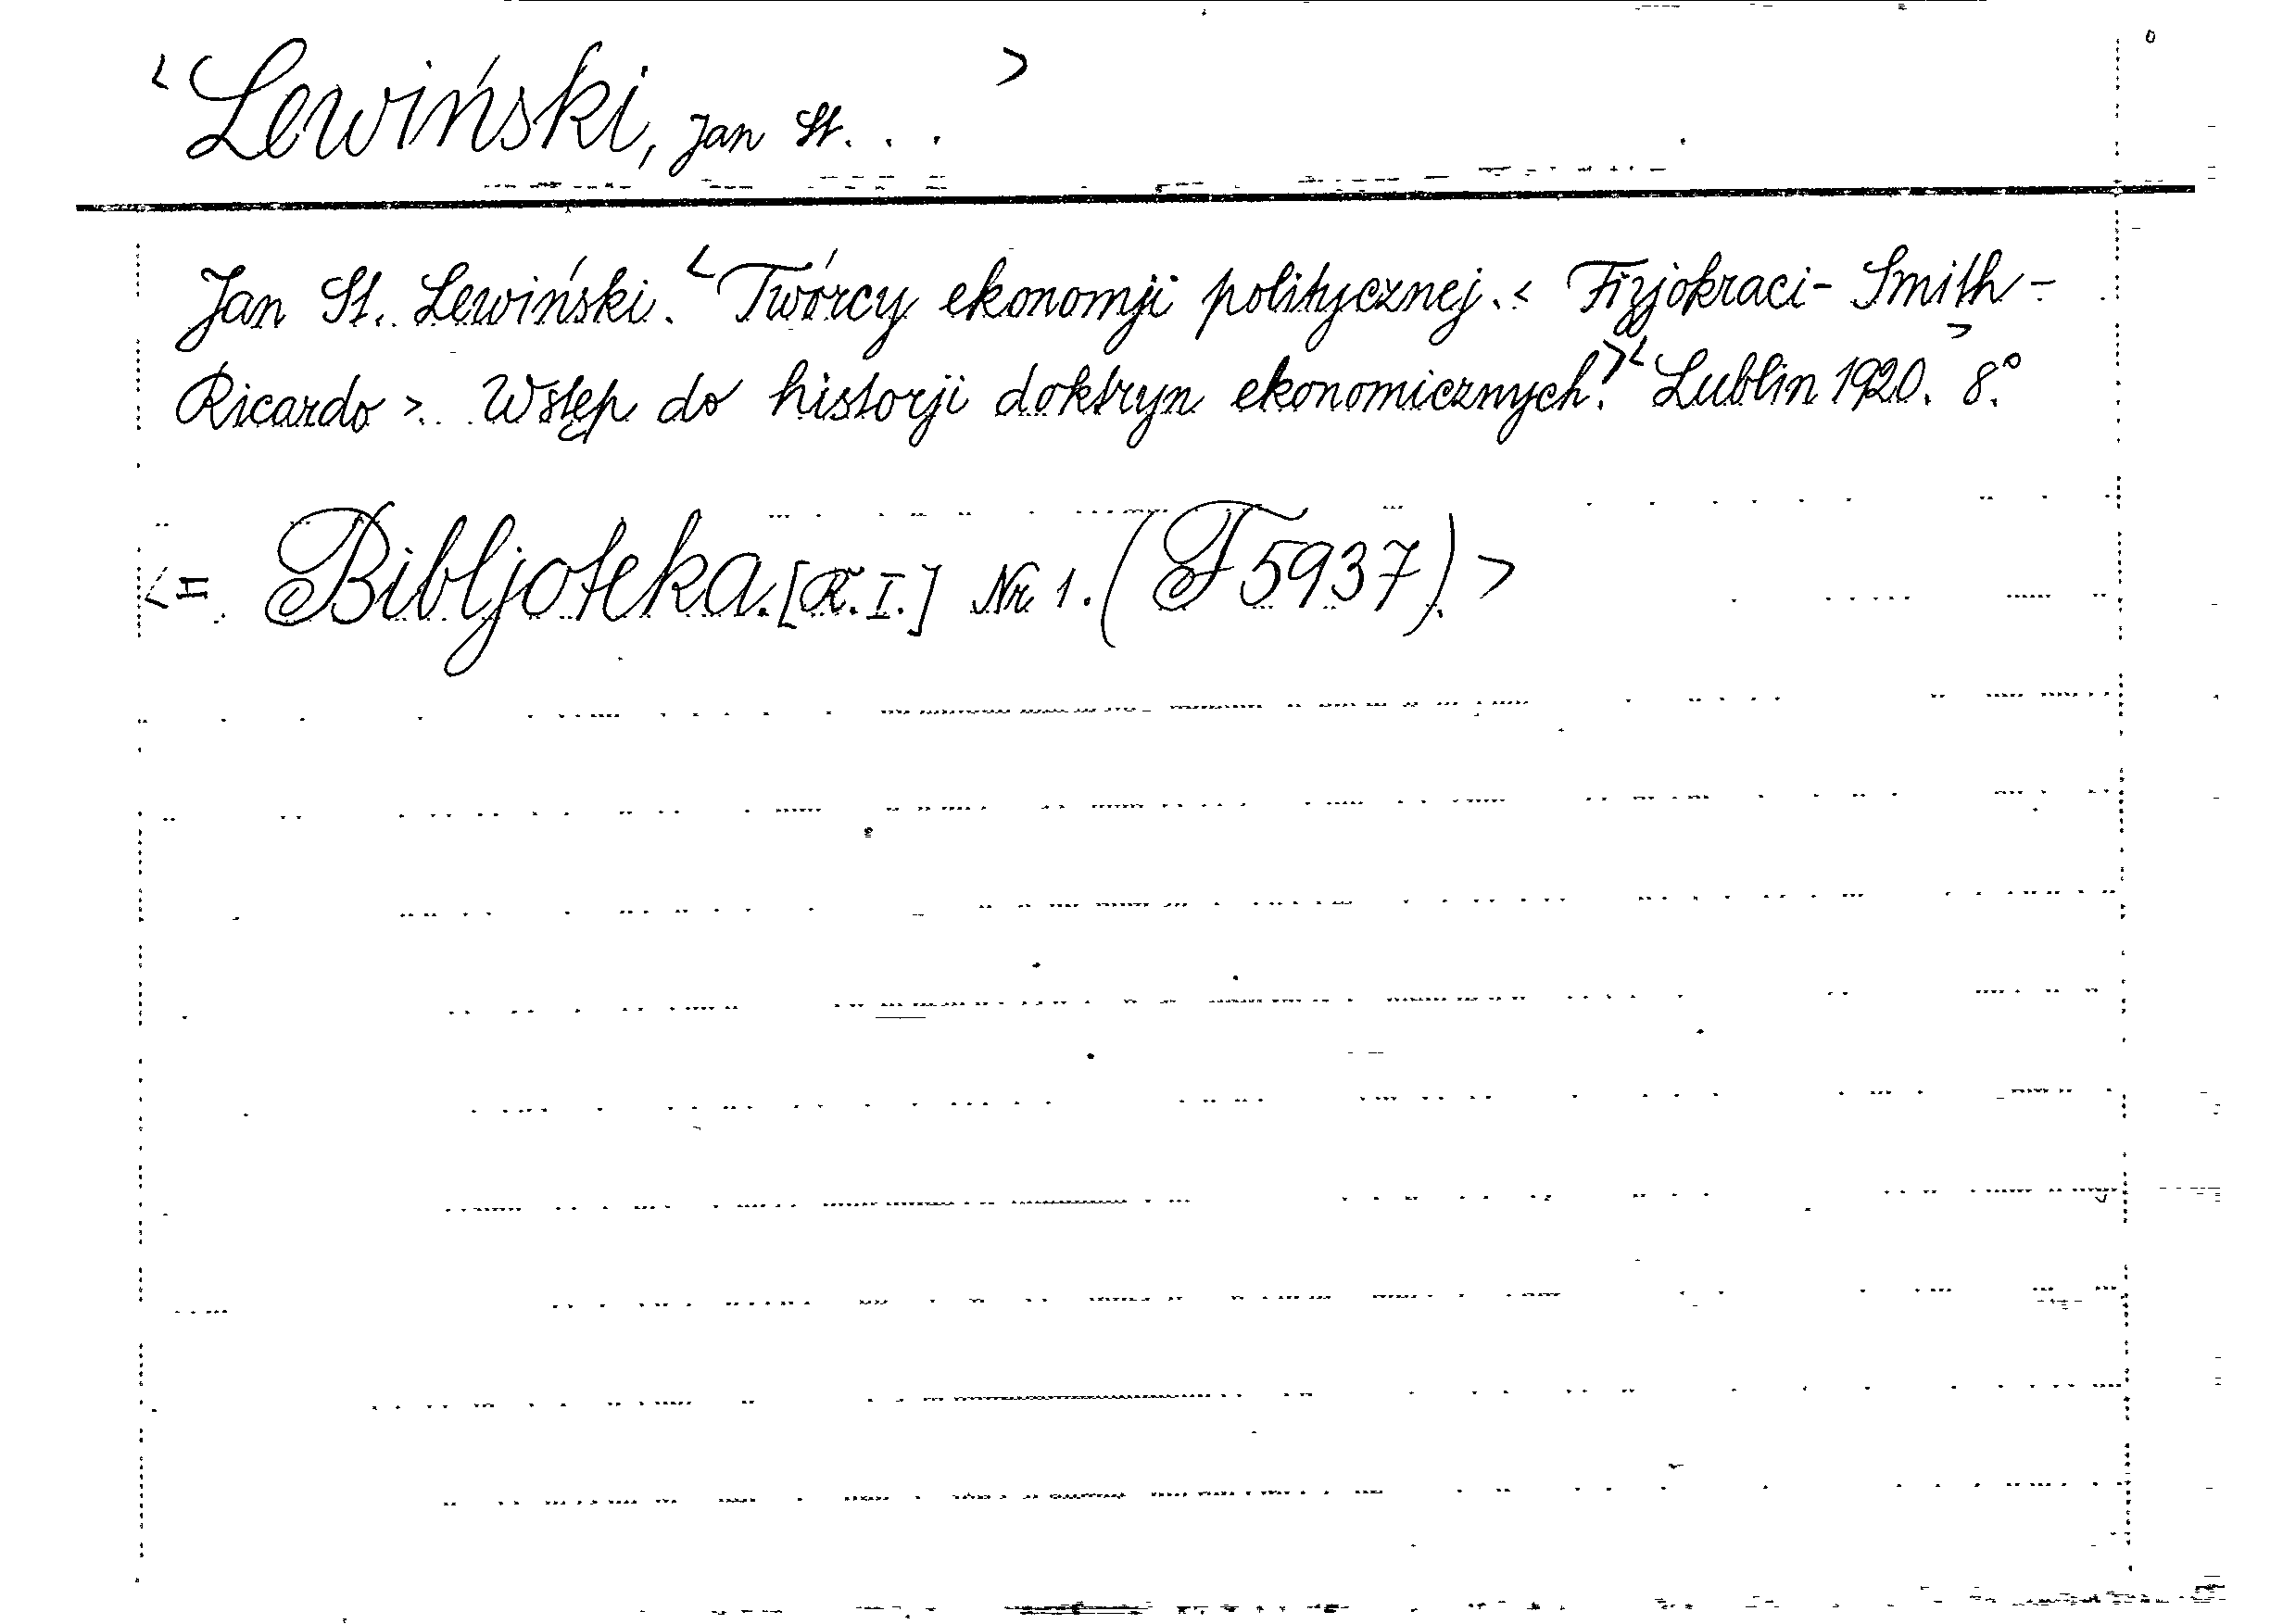 <Lewiński, Jan St. . . >
Jan St. Lewiński. <Twórcy ekonomji politycznej. < Fizjokraci - Smith -
Ricardo >. Wstęp do historji doktryn ekonomicznych.> <Lublin 1920.> 8.°
<= Bibljoteka. [R. I.] Nr. 1. (F 5937) >